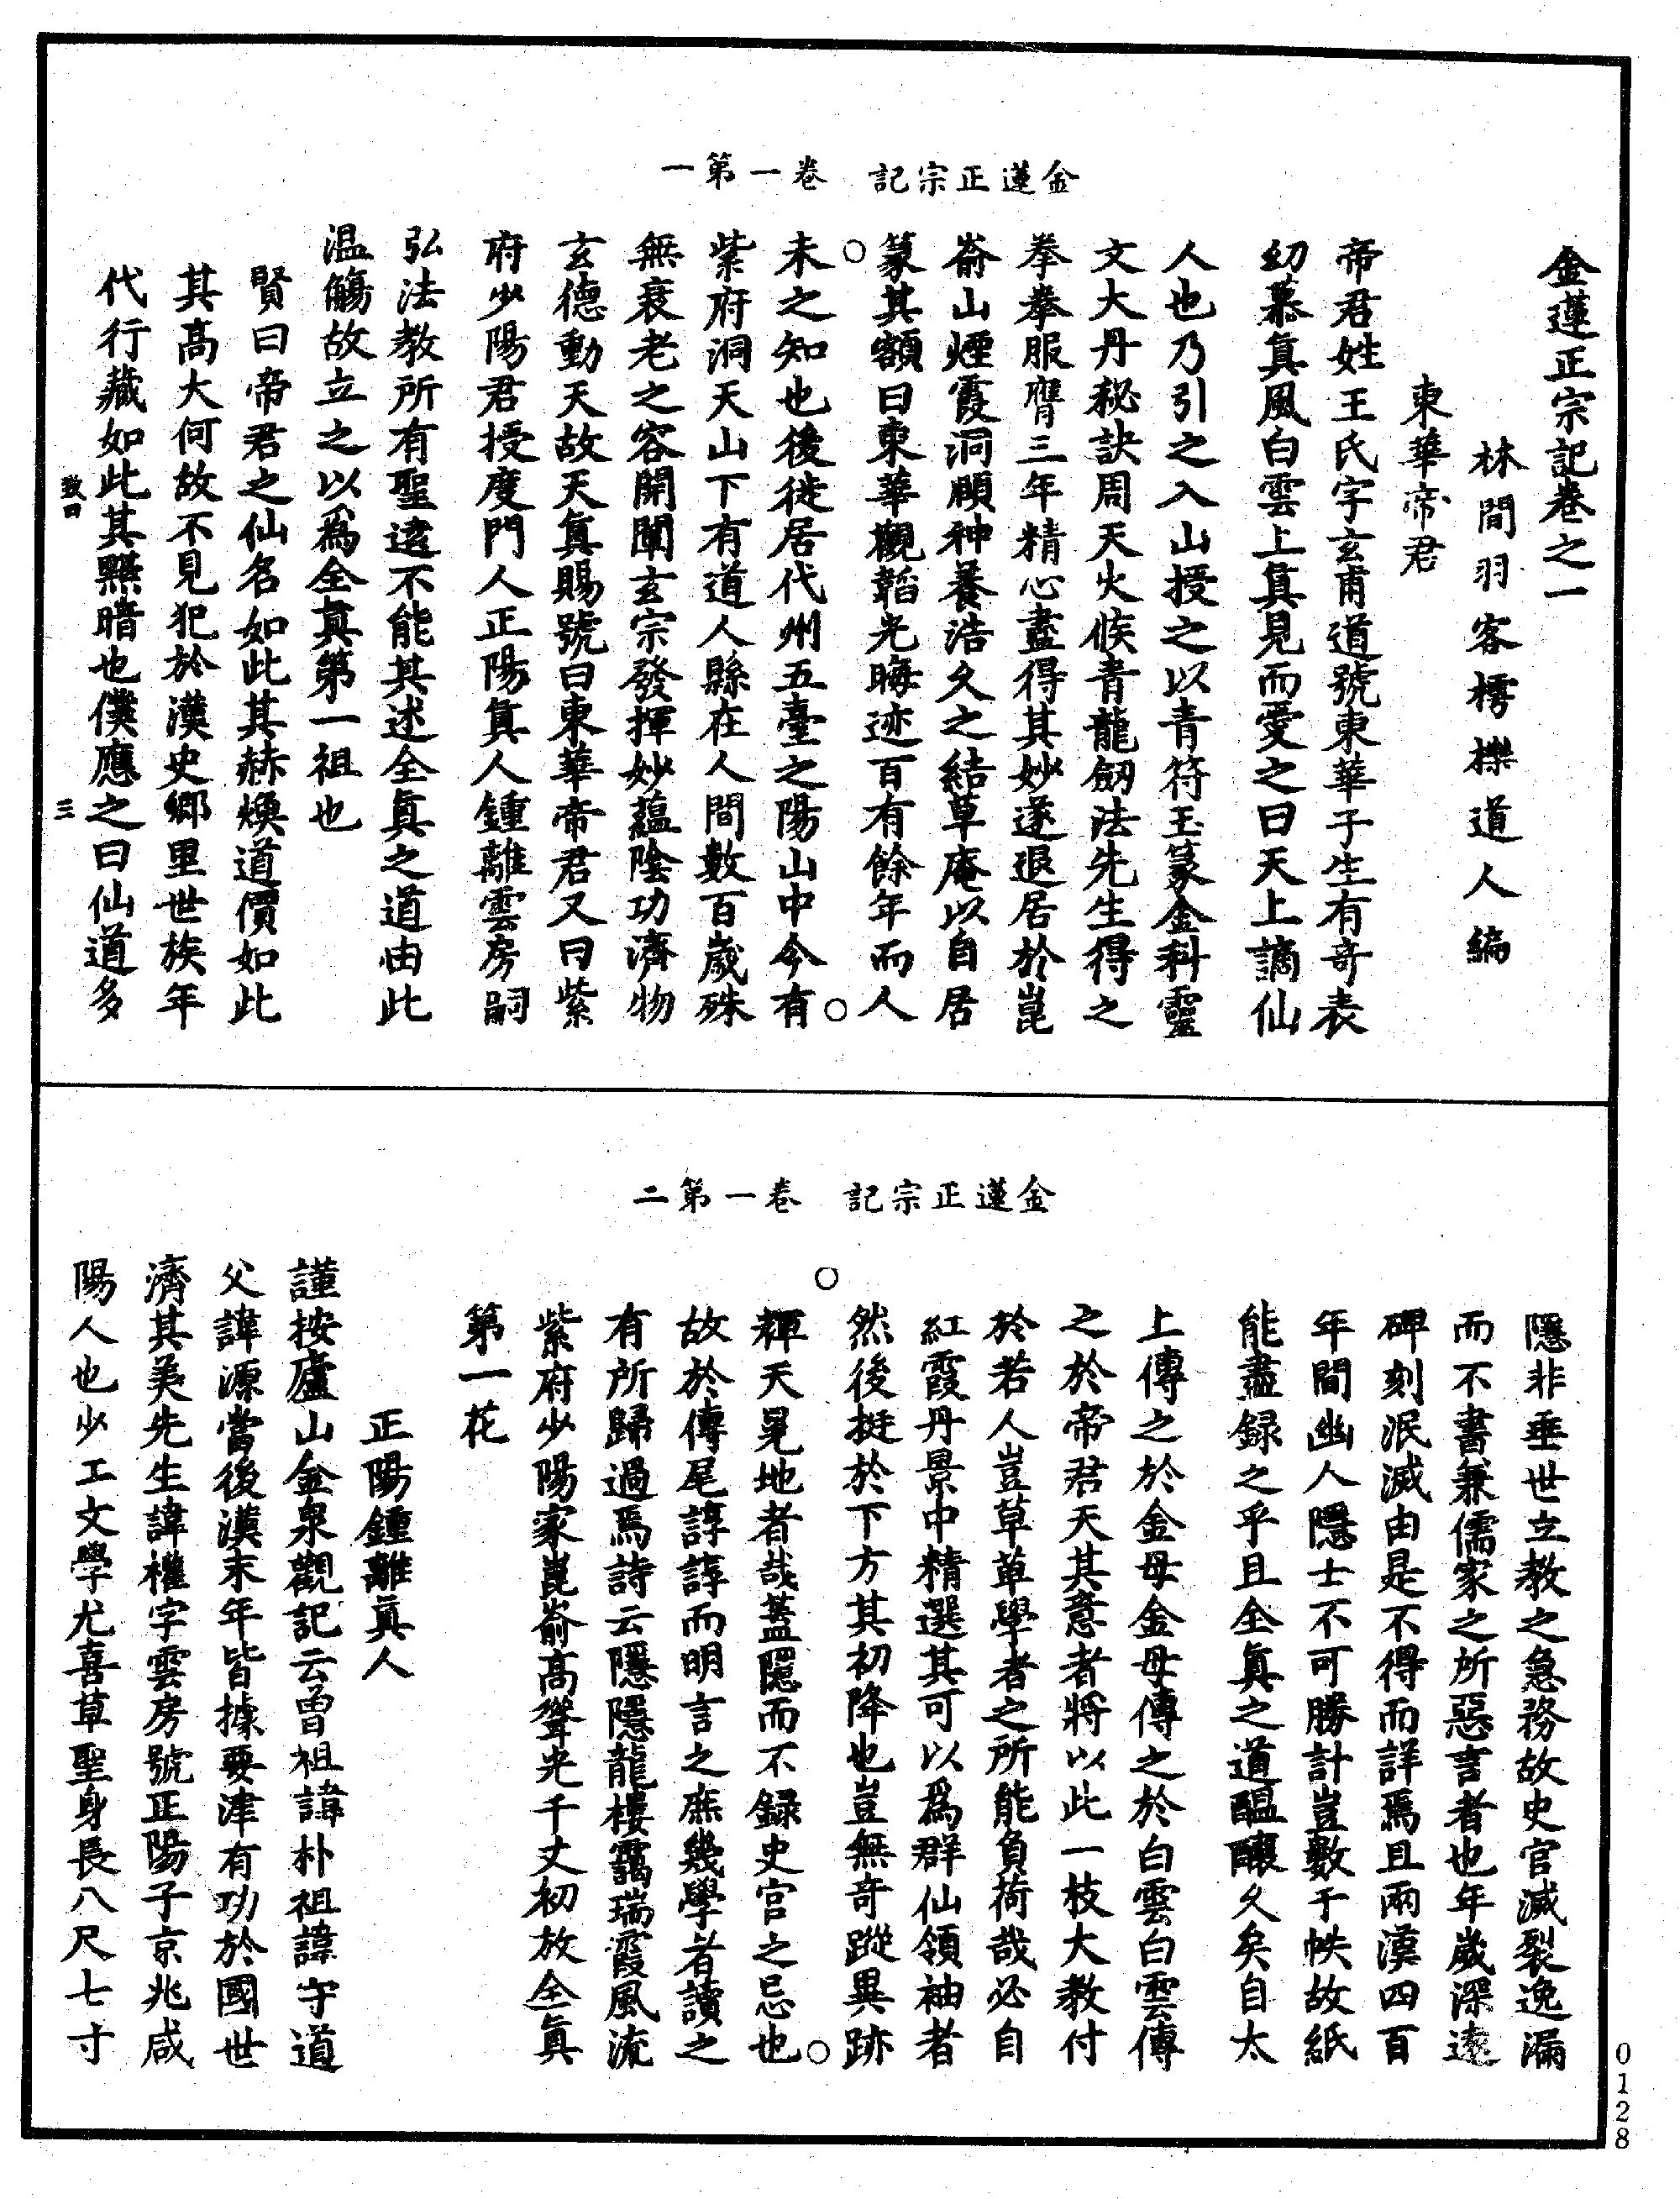 金蓮正宗記　卷一第一
金蓮正宗記卷之一
林間羽客樗櫟道人編
東華帝君
帝君姓王氏字玄甫道號東華子生有奇表
幼慕真風白雲上真見而愛之曰天上謫仙
人也乃引之入山授之以青符玉篆金科靈
文大丹秘訣周天火候青龍劒法先生得之
拳拳服膺三年精心盡得其妙遂退居於崑
嵛山煙霞洞頤神養浩久之結草庵以自居
篆其額曰東華觀韜光晦迹百有餘年而人
未之知也後徙居代州五臺之陽山中今有
紫府洞天山下有道人縣在人間數百歲殊
無衰老之容開闡玄宗發揮妙蘊陰功濟物
玄德動天故天真賜號曰東華帝君又曰紫
府少陽君授度門人正陽真人鍾離雲房嗣
弘法教所有聖迹不能具述全真之道由此
濫觴故立之以為全真第一祖也
賢曰帝君之仙名如此其赫煥道價如此
其高大何故不見犯於漢史鄉里世族年
代行藏如此其黯暗也僕應之曰仙道多
致四　三
金蓮正宗記　卷一第二
隱非垂世立教之急務故史官滅裂逸漏
而不書兼儒家之所惡言者也年歲深遠
碑刻泯滅由是不得而詳焉且兩漢四百
年間幽人隱士不可勝計豈數千帙故紙
能盡録之乎且全真之道醞釀久矣自太
上傳之於金母金母傳之於白雲白雲傳
之於帝君天其意者將以此一枝大教付
於若人豈草草學者之所能負荷哉必自
紅霞丹景中精選其可以為群仙領袖者
然後挺於下方其初降也豈無奇蹤異跡
輝天晃地者哉蓋隱而不録史官之忌也
故於傳尾諄諄而明言之庶幾學者讀之
有所歸過焉詩云隱隱龍樓靄瑞霞風流
紫府少陽家崑嵛高聳光千丈初放全真
第一花
正陽鍾離真人
謹按廬山金泉觀記云曾祖諱朴祖諱守道
父諱源當後漢末年皆據要津有功於國世
濟其美先生諱權字雲房號正陽子京兆咸
陽人也少工文學尤喜草聖身長八尺七寸
0128